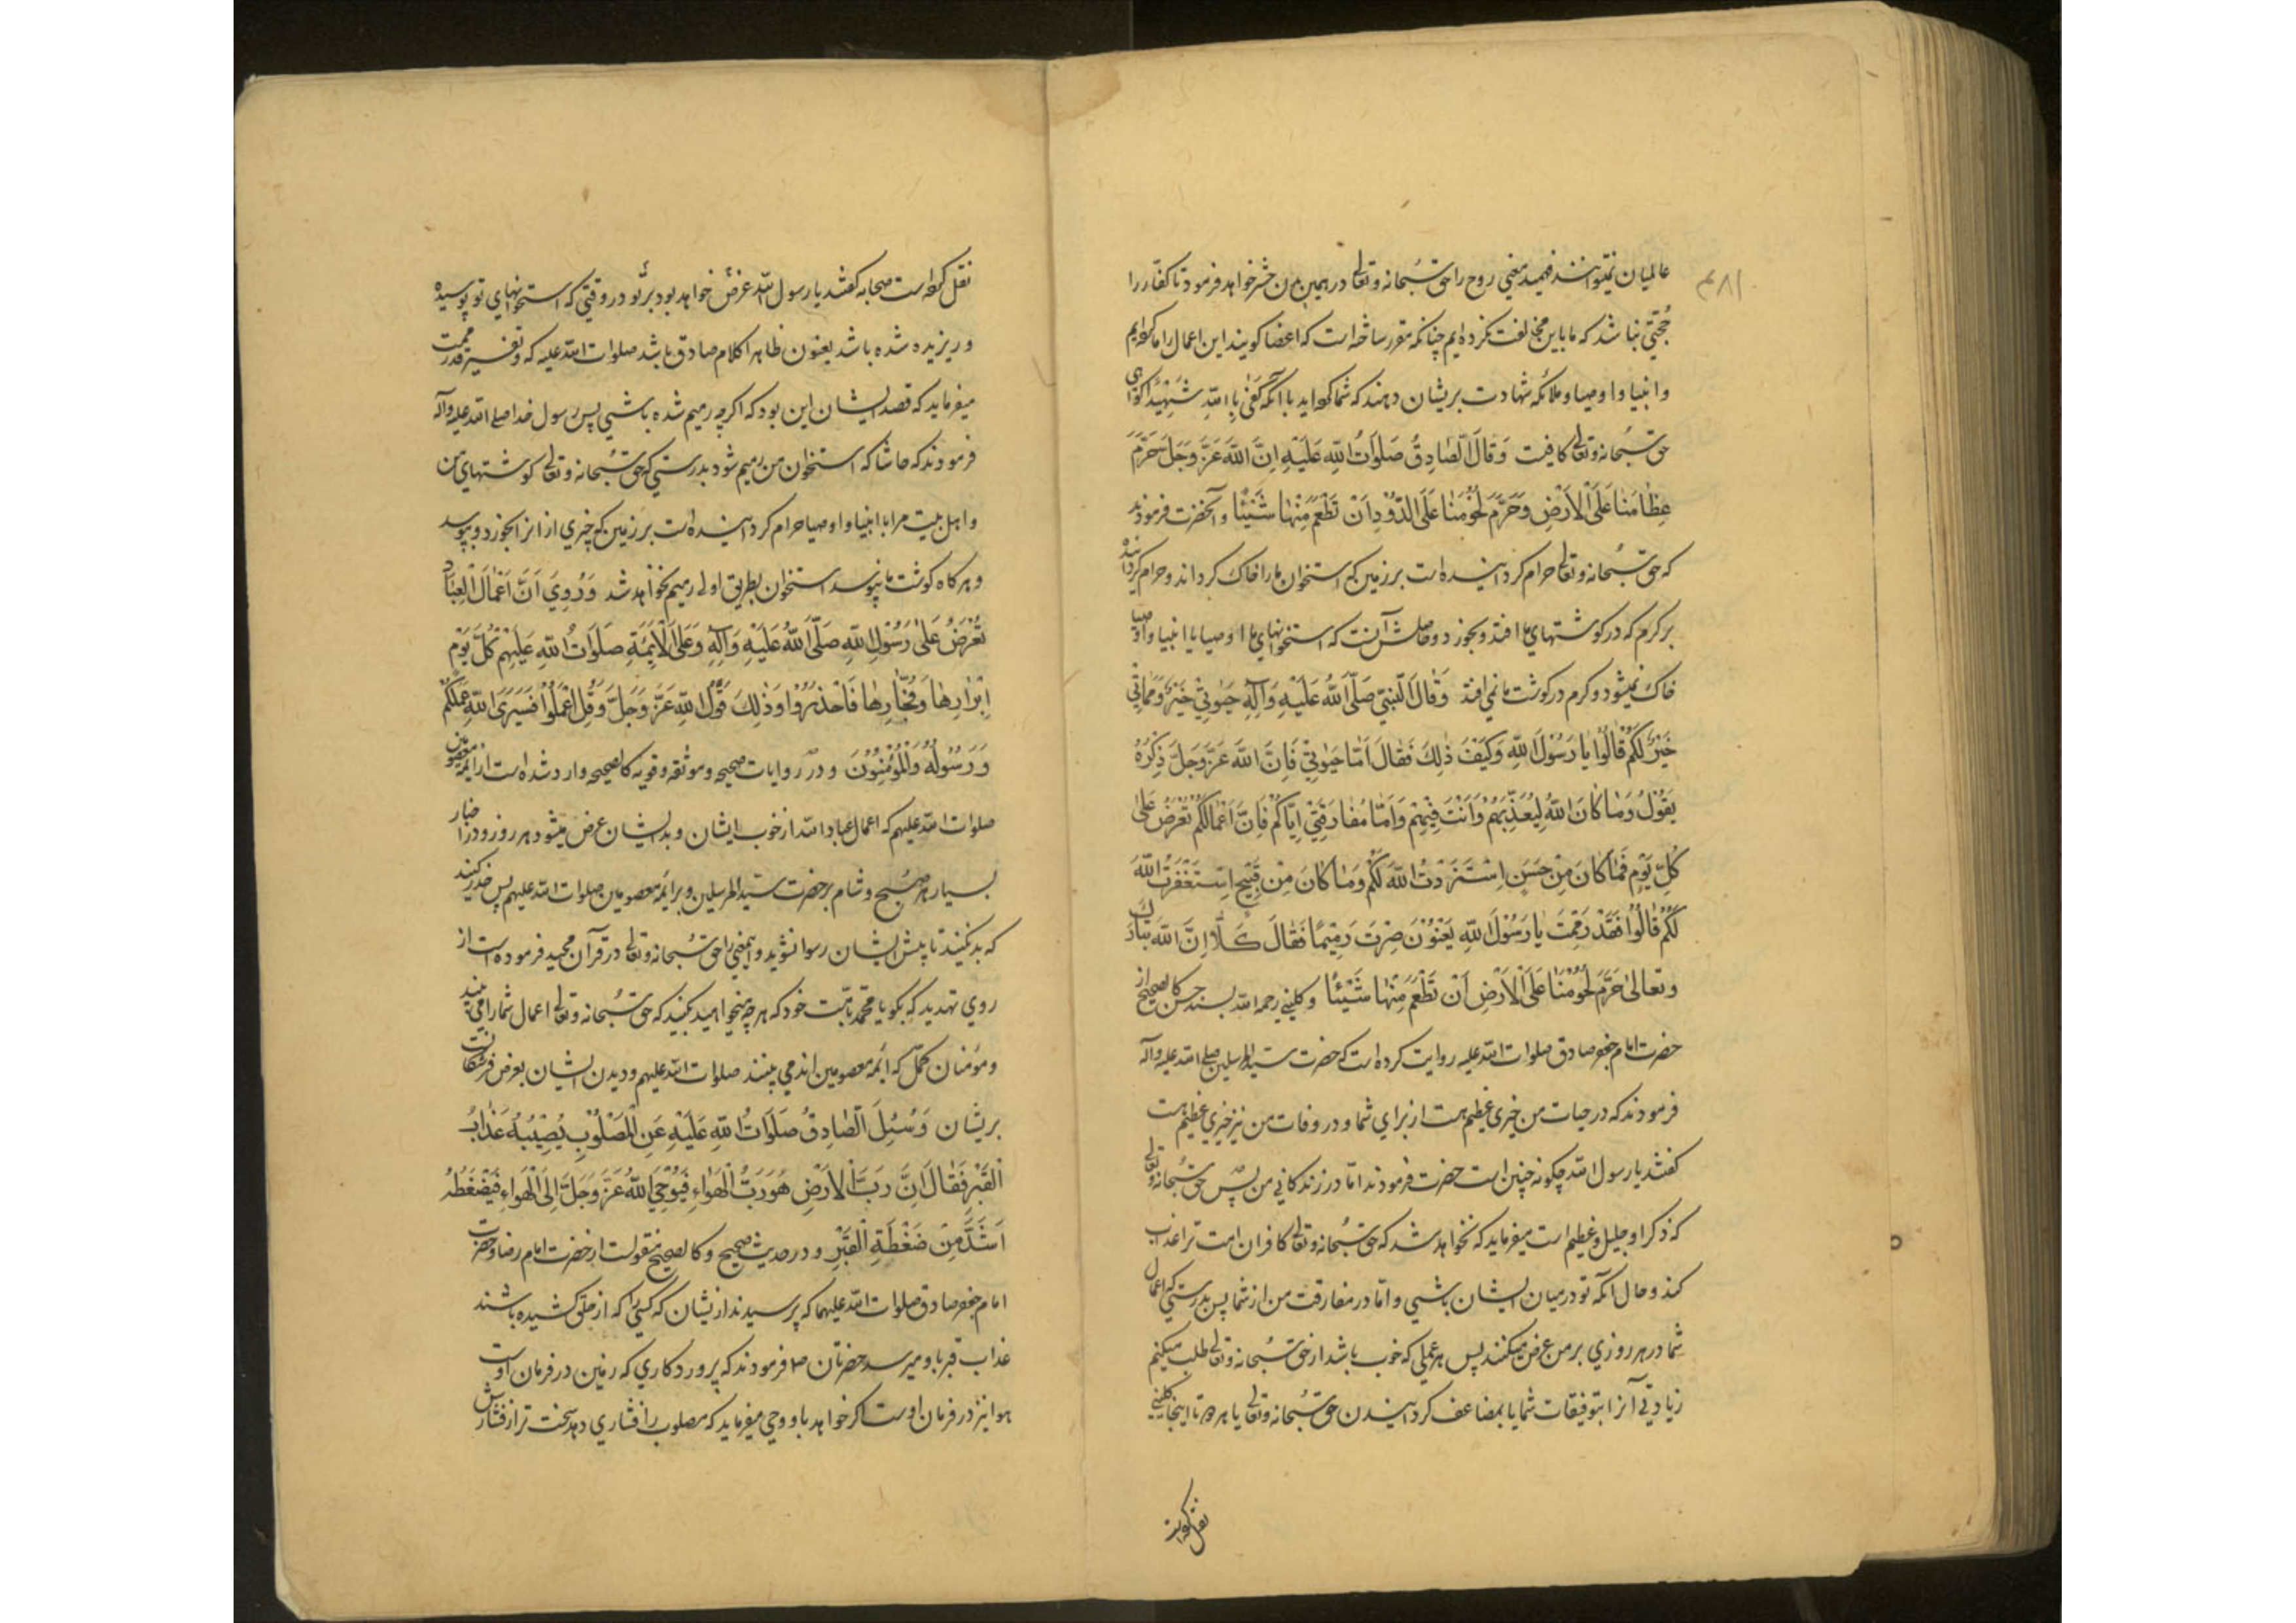 ۴۸۱
عالمیان نمیتوانند فهمید یعنی روح را حق سُبحانه و تعالی در همین بدن حشر خواهد فرمود تا کفّار را
حُجتی نباشد که ما باین مخالفت نکرده ایم چنانکه مقرر ساخته است که اعضا کویند این اعمال را ما کرده ایم
و انبیا و اوصیا و ملائکه شهادت بریشان دهند که شما کرده اید با آنکه کَفٰی بِاللهِ شَهِیْدًا کواهی
حق سُبحانه و تعالی کافیست وَقَالَ الصّٰادِقُ صَلَوٰاتُ اللّٰهِ عَلَیْهِ اِنَّ اللّٰهَ عَزَّ وَجَلَّ حَرَّمَ
عِظٰامَنٰا عَلَی الْاَرْضِ وَحَرَّمَ لُحُوْمَنٰا عَلَی الدُّوْدِ اَنْ تَطْعَمَ مِنْهٰا شَیْئًا و آنحضرت فرمودند
که حق سُبحانه و تعالی حرام کردانیده است بر زمین که استخوان ما را خاک کرداند و حرام کردانیده
بر کرم که در کوشتهای ما افتد و بخورد و حاصلش آنست که استخوانهای ما اوصیا یا انبیا و اوصیا
خاک نمیشود و کرم در کوشت ما نمی افتد وَقٰالَ النَّبِیُّ صَلَّی اللّٰهُ عَلَیْهِ وَآلِهِ حَیٰوتِیْ خَیْرٌ لَکُمْ وَمَمٰاتِیْ
خَیْرٌ لَکُمْ قٰالُوْا یٰا رَسُوْلَ اللّٰهِ وَکَیْفَ ذٰلِکَ فَقٰالَ اَمّٰا حَیٰوتِیْ فَاِنَّ اللّٰهَ عَزَّ وَجَلَّ ذِکْرُهُ
یَقُوْلُ وَمٰا کٰانَ اللّٰهُ لِیُعَذِّبَهُمْ وَاَنْتَ فِیْهِمْ وَاَمّٰا مُفٰارَقَتِیْ اِیّٰاکُمْ فَاِنَّ اَعْمٰالَکُمْ تُعْرَضُ عَلَیَّ
کُلَّ یَوْمٍ فَمٰا کٰانَ مِنْ حَسَنٍ اِسْتَزَدْتُ اللّٰهَ لَکُمْ وَمٰا کٰانَ مِنْ قَبِیْحٍ اِسْتَغْفَرْتُ اللّٰهَ
لَکُمْ قٰالُوْا فَقَدْ رَمِمْتَ یٰا رَسُوْلَ اللّٰهِ یَعْنُوْنَ صِرْتَ رَمِیْمًا فَقٰالَ کَلّٰا اِنَّ اللّٰهَ تَبٰارَکَ
وَتَعٰالیٰ حَرَّمَ لُحُوْمَنٰا عَلَی الْاَرْضِ اَنْ تَطْعَمَ مِنْهٰا شَیْئًا و کلینی رحمه الله بسند حسن کالصحیح از
حضرت امام جعفر صادق صلوات الله علیه روایت کرده است که حضرت سید المرسلین صلی الله علیه و آله
فرمودند که در حیات من خیری عظیم هست از برای شما و در وفات من نیز خیری عظیم هست
کفتند یا رسول الله چکونه چنین است حضرت فرمودند امّا در زندکانی من پس حق سُبحانه و تعالی
که ذکر او جلیل و عظیم است میفرماید که نخواهد شد که حق سُبحانه و تعالی کافران امت ترا عذاب
کند و حال آنکه تو در میان ایشان باشی و امّا در مفارقت من از شما پس بدرستی که اعمال
شما در هر روزی بر من عرض میکنند پس هر عملی که خوب باشد از حق سُبحانه و تعالی طلب میکنم
زیادتی آنرا بتوفیقات شما یا بمضاعف کردانیدن حق سُبحانه و تعالی یا هر دو تا اینجا کلینی
نقل کرده است
نقل کرده است صحابه کفتند یا رسول الله عرض خواهد بود بر تو در وقتی که استخوانهای تو پوسیده
و ریزیده شده باشد یعنون ظاهرا کلام صادق باشد صلوات الله علیه که تفسیر قد رممت
میفرماید که قصد ایشان این بود که اکرچه رمیم شده باشی پس رسول خدا صلی الله علیه و آله
فرمودند که حاشا که استخوان من رمیم شود بدرستی که حق سُبحانه و تعالی کوشتهای من
و اهل بیت مرا با انبیا و اوصیا حرام کردانیده است بر زمین که چیزی از انرا بخورد و بپوسد
و هر کاه کوشت ما نپوسد استخوان بطریق اولی رمیم نخواهد شد وَرُوِیَ اَنَّ اَعْمٰالَ الْعِبٰادِ
تُعْرَضُ عَلیٰ رَسُوْلِ اللّٰهِ صَلَّی اللّٰهُ عَلَیْهِ وَآلِهِ وَعَلَی الْاَئِمَّةِ صَلَوٰاتُ اللّٰهِ عَلَیْهِمْ کُلَّ یَوْمٍ
اَبْرٰارِهٰا وَفُجّٰارِهٰا فَاحْذَرُوْا وَذٰلِکَ قَوْلُ اللّٰهِ عَزَّ وَجَلَّ وَقُلِ اعْمَلُوْا فَسَیَرَی اللّٰهُ عَمَلَکُمْ
وَرَسُوْلُهُ وَالْمُؤْمِنُوْنَ و در روایات صحیحه و موثقه و قویه کالصحیحه وارد شده است از ائمه معصومین
صلوات الله علیهم که اعمال عباد الله از خوب ایشان و بد ایشان عرض میشود هر روز و در اخبار
بسیار هر صُبح و شام بر حضرت سید المرسلین و بر ائمه معصومین صلوات الله علیهم پس حذر کنید
که بد نکنید تا پیش ایشان رسوا نشوید و این معنی را حق سُبحانه و تعالی در قرآن مجید فرموده است از
روی تهدید که بکو یا محمّد بامّت خود که هر چه میخواهید بکنید که حق سُبحانه و تعالی اعمال شما را می بیند
و مؤمنان کمّل که ائمه معصومین اند می بینند صلوات الله علیهم و دیدن ایشان بعرض فرشتکانست
بریشان وَسُئِلَ الصّٰادِقُ صَلَوٰاتُ اللّٰهِ عَلَیْهِ عَنِ الْمَصْلُوْبِ یُصِیْبُهُ عَذٰابُ
الْقَبْرِ فَقٰالَ اِنَّ رَبَّ الْاَرْضِ هُوَ رَبُّ الْهَوٰاءِ فَیُوْحِی اللّٰهُ عَزَّ وَجَلَّ اِلَی الْهَوٰاءِ فَیَضْغَطُهُ
اَشَدَّ مِنْ ضَغْطَةِ الْقَبْرِ و در حدیث صحیح و کالصحیح منقولست از حضرت امام رضا و حضرت
امام جعفر صادق صلوات الله علیهما که پرسیدند از یشان که کسی را که از حلق کشیده باشند
عذاب قبر باو میرسد حضرتان ص فرمودند که پروردکاری که زمین در فرمان اوست
هوا نیز در فرمان اوست اکر خواهد باو وحی میفرماید که مصلوب را فشاری دهد سخت تر از فشارش